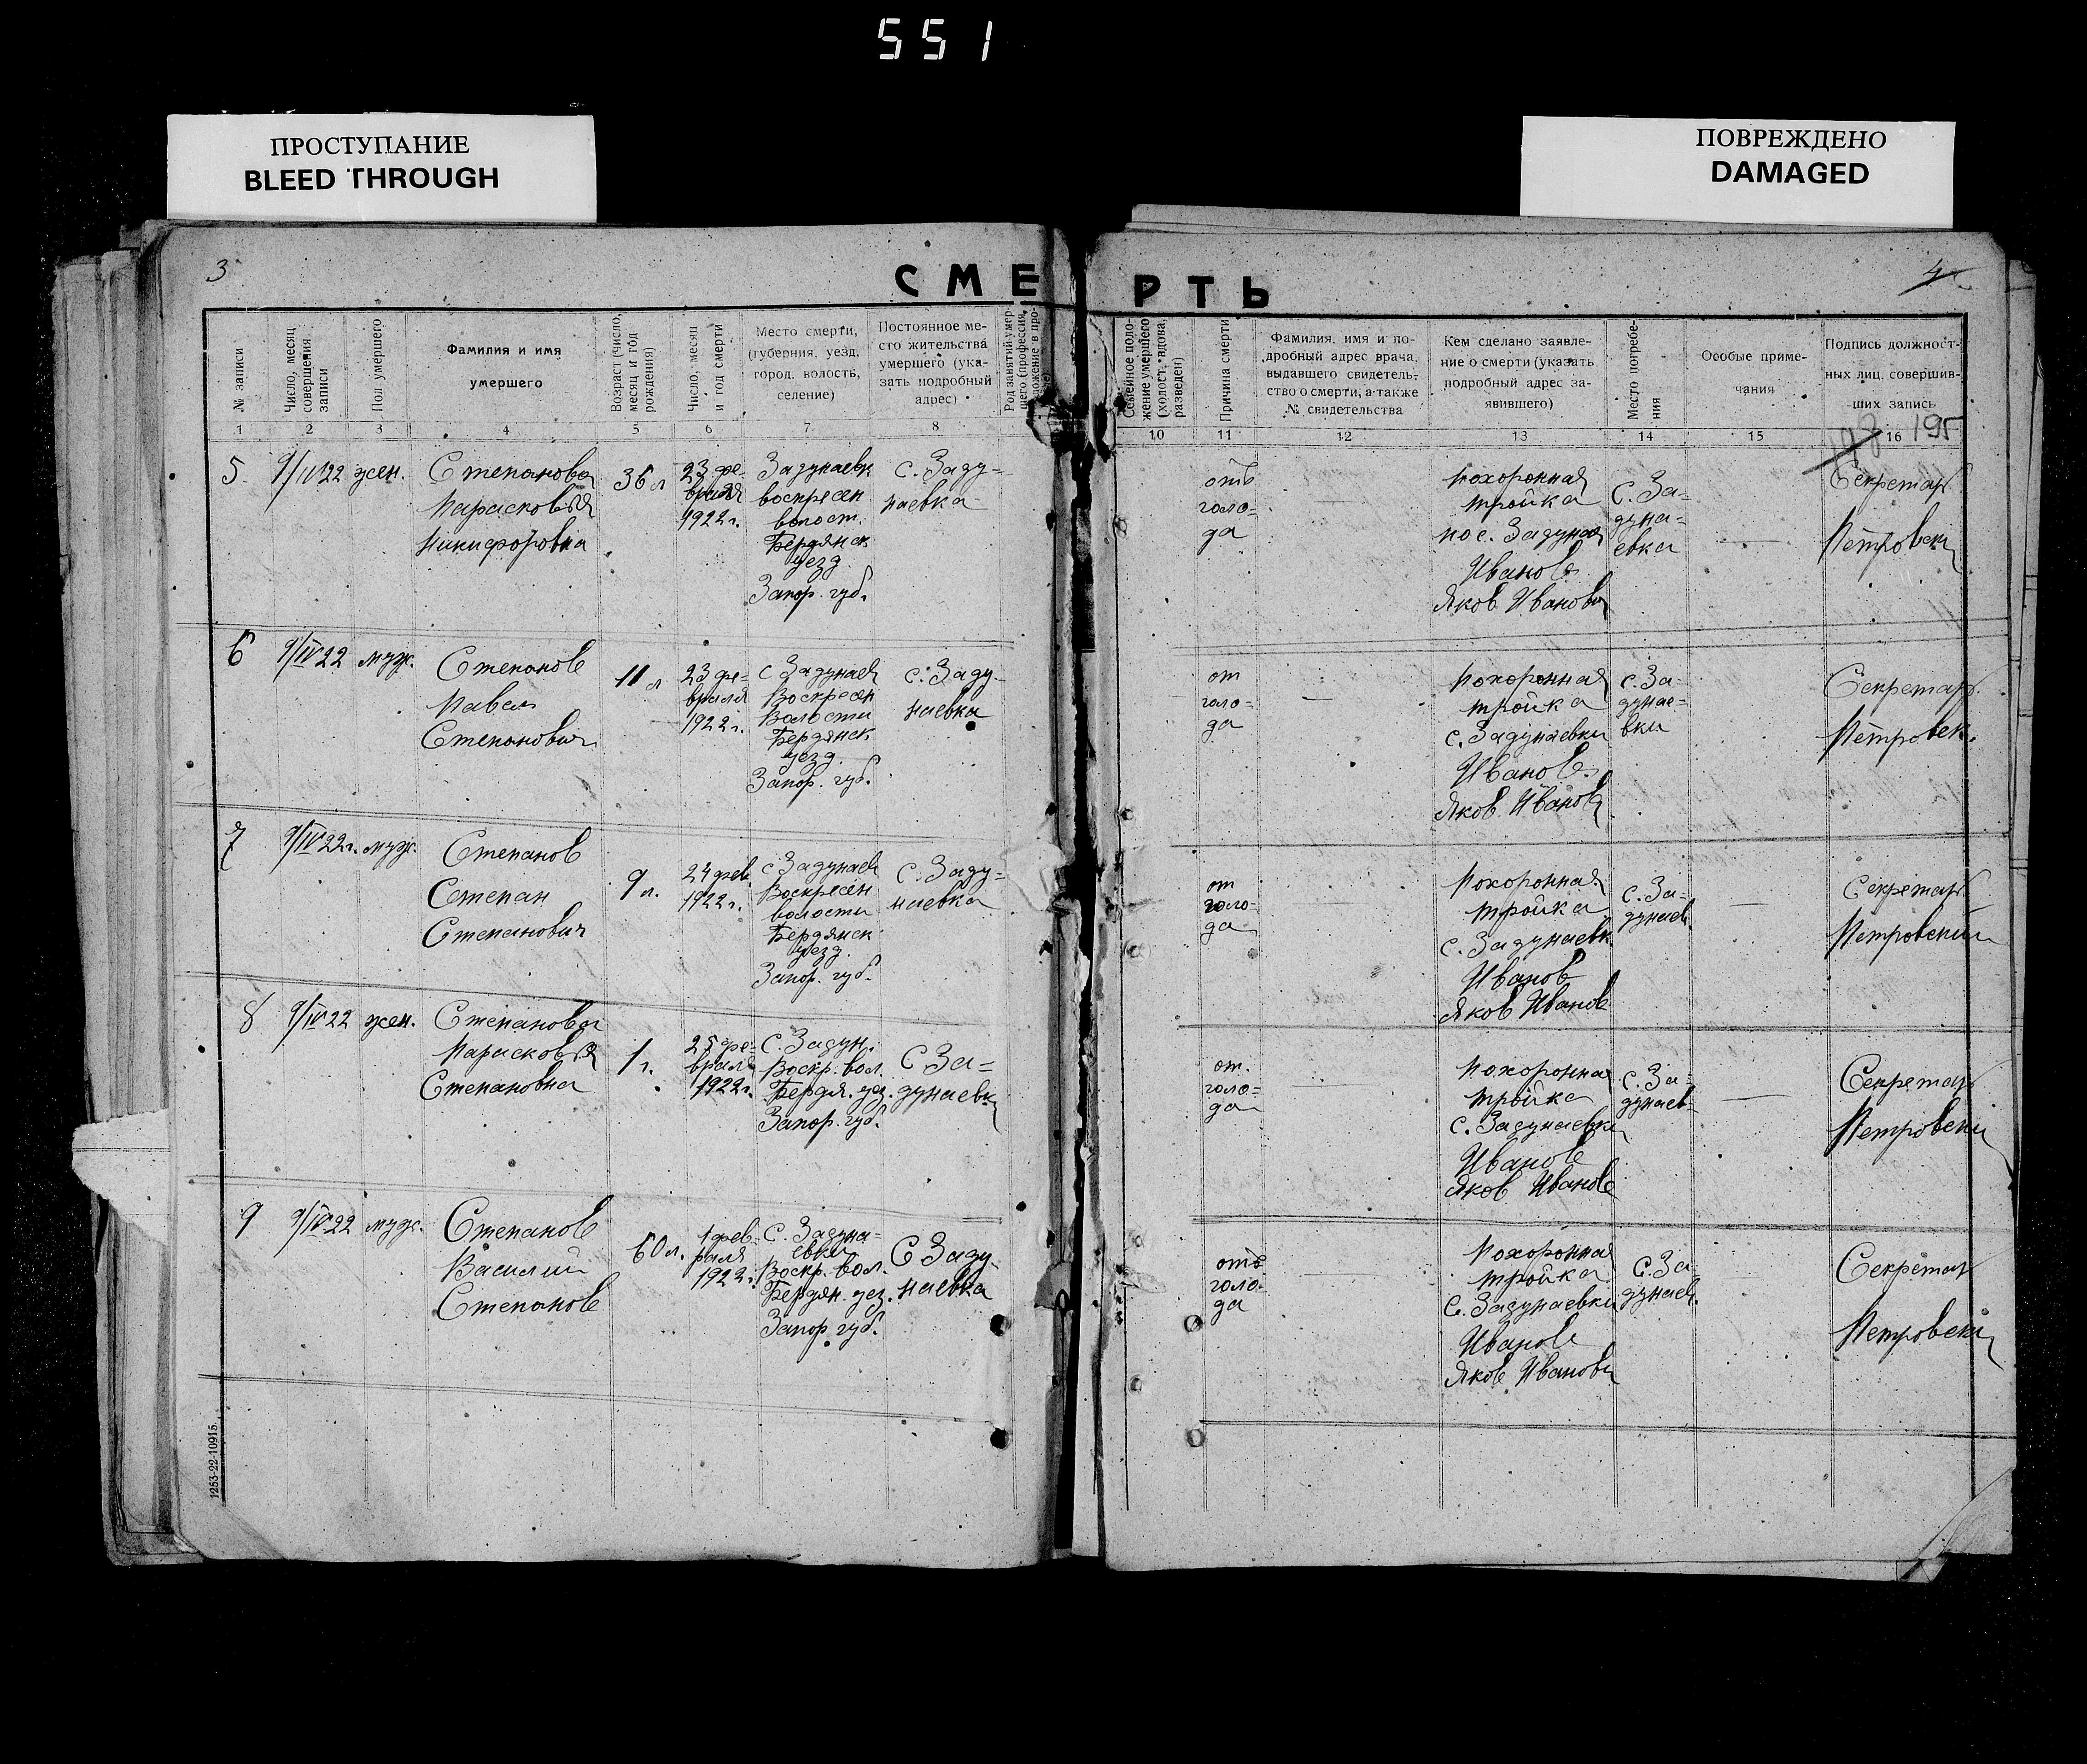 551
ПРОСТУПАНИЕ
BLEED THROUGH
ПОВРЕЖДЕНО
DAMAGED
3
4
СМЕРТЬ
№ записи
Число, месяц
совершения
записи
Пол умершего
Фамилия и имя
умершего
Возраст (число,
месяц и год
рождения)
Число, месяц
и год смерти
Место смерти,
(губерния, уезд,
город, волость,
селение)
Постоянное ме-
сто жительства
умершего (ука-
зать подробный
адрес)
Род занятий умер-
шего (профессия,
положение в про-
Семейное поло-
жение умершего
(холост, вдова,
разведен)
Причина смерти
Фамилия, имя и по-
дробный адрес врача,
выдавшего свидетель-
ство о смерти, а также
№ свидетельства
Кем сделано заявле-
ние о смерти (указать
подробный адрес за-
явившего)
Место погребе-
ния
Особые приме-
чания
Подпись должност-
ных лиц, совершив-
ших запись
1 2 3 4 5 6 7 8
10 11 12 13 14 15 16
198 195
5.
9/IV 22
жен.
Степанова
Парасковья
Никифоровна
36 л
23 фе-
враля
1922 г.
Задунаевк
воскресен
волост.
Бердянск
уезд.
Запор. губ.
с. Заду-
наевка
отъ
голо-
да
похоронная
тройка
пос. Задуная
Иванов
Яков Иванови
с. За-
дуна-
евка
Секретарь
Петровски
6
9/IV 22
муж.
Степанов
Павел
Степанович
11 л
23 фе-
враля
1922 г.
с Задунаев
Воскресен
Волости
Бердянск
уезд.
Запор. губ.
с. Заду-
наевка
от
голо-
да
Похоронная
тройка
с. Задунаевки
Иванов
Яков Иванов
с. За-
дунае-
вки
Секретарь
Петровск.
7
9/IV 22 г.
муж.
Степанов
Степан
Степанович
9 л.
24 фев.
1922 г.
с Задунаев
Воскресен
волости
Бердянск
уезд.
Запор. губ.
с. Заду-
наевка
от
голо-
да
Похоронная
тройка
с. Задунаевк
Иванов
Яков Иванов
с. За-
дунаев
Секретарь
Петровский
8
9/IV 22
жен.
Степанова
Парасковья
Степановна
1 г.
25 фе-
враля
1922 г.
С. Задун.
Воскр. вол.
Бердя. уез.
Запор. губ.
С За-
дунаевка
от.
голо-
да
Похоронная
тройка
с. Задунаевки
Иванов
Яков Иванов
с. За-
дунаев
Секретарь
Петровски
9
9/IV 22
муж.
Степанов
Василий
Степанов
60 л.
1 фев-
раля
1922 г.
С. Задуна-
евки
Воскр. вол.
Бердян. уез.
Запор. губ.
С Заду-
наевка
отъ
голо-
да
Похоронная
тройка
С. Задунаевки
Иванов
Яков Иванови
с. За-
дунаев.
Секретар
Петровски
1253-22-10915.